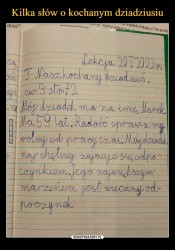 Kilka słów o kochanym dziadziusiu
Lekcja 20.1.2022r.
T: Nasz kochany dziadziuś.
ćw. 3 str. 72
Mój dziadek ma na imię Marek.
Ma 59 lat. Radość sprawia my
wolny od pracy czas. Mój dziadek
najchętniej zajmuje się odpo-
czynkiem. Jego największym
marzeniem jest wieczny od-
poczynek